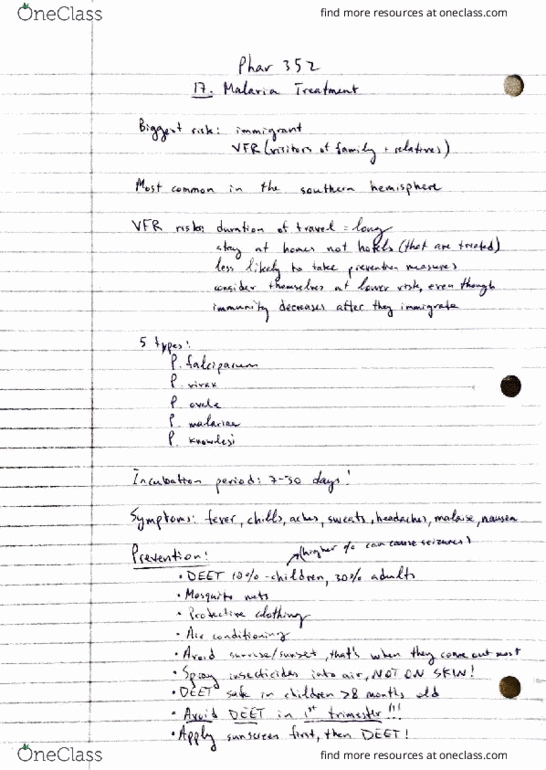 OneClass
find more resources at oneclass.com
Phar 352
17. Malaria Treatment
Biggest risk: immigrant
VFR (visitors of family + relatives)
Most common in the southern hemisphere
VFR risks: duration of travel = long
stay at homes not hotels (that are treated)
less likely to take prevention measures
consider themselves at lower risk, even though
immunity decreases after they immigrate
5 types:
P. falciparum
P. vivax
P. ovale
P. malariae
P. knowlesi
Incubation period: 7-30 days!
Symptoms: fever, chills, aches, sweats, headaches, malaise, nausea
(higher % can cause seizures)
Prevention!
• DEET 10% - children, 30% adults
• Mosquito nets
• Protective clothing
• Air conditioning
• Avoid sunrise/sunset, that's when they come out most
• Spray insecticides into air, NOT ON SKIN!
• DEET safe in children >8 months old
• Avoid DEET in 1st trimester!!!
• Apply sunscreen first, then DEET!
OneClass
find more resources at oneclass.com